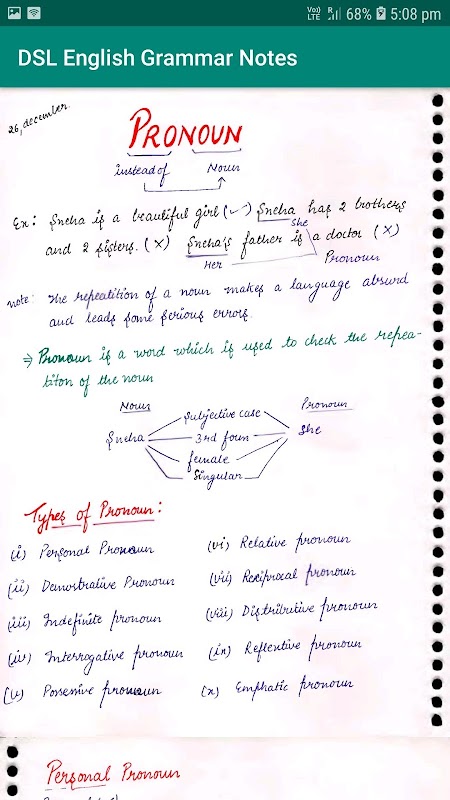 Voo) LTE R 68% 5:08 pm
DSL English Grammar Notes
26, december.
PRONOUN
instead of Noun
Ex: Sneha is a beautiful girl (✓) Sneha has 2 brothers
She
and 2 sisters. (X) Sneha's father is a doctor (X)
Her Pronoun
note: the repeatition of a noun makes a language absurd
and leads some serious errors.
→ Pronoun is a word which is used to check the repea-
tition of the noun
Noun Pronoun
Subjective case
Sneha 3rd foun She
female
Singular
Types of Pronoun:
(i) Personal Pronoun (vi) Relative pronoun
(ii) Demostrative Pronoun (vii) Reciprocal pronoun
(iii) Indefinite pronoun (viii) Distributive pronoun
(iv) Interrogative pronoun (ix) Reflentive pronoun
(v) Possessive pronoun (x) Emphatic pronoun
Personal Pronoun